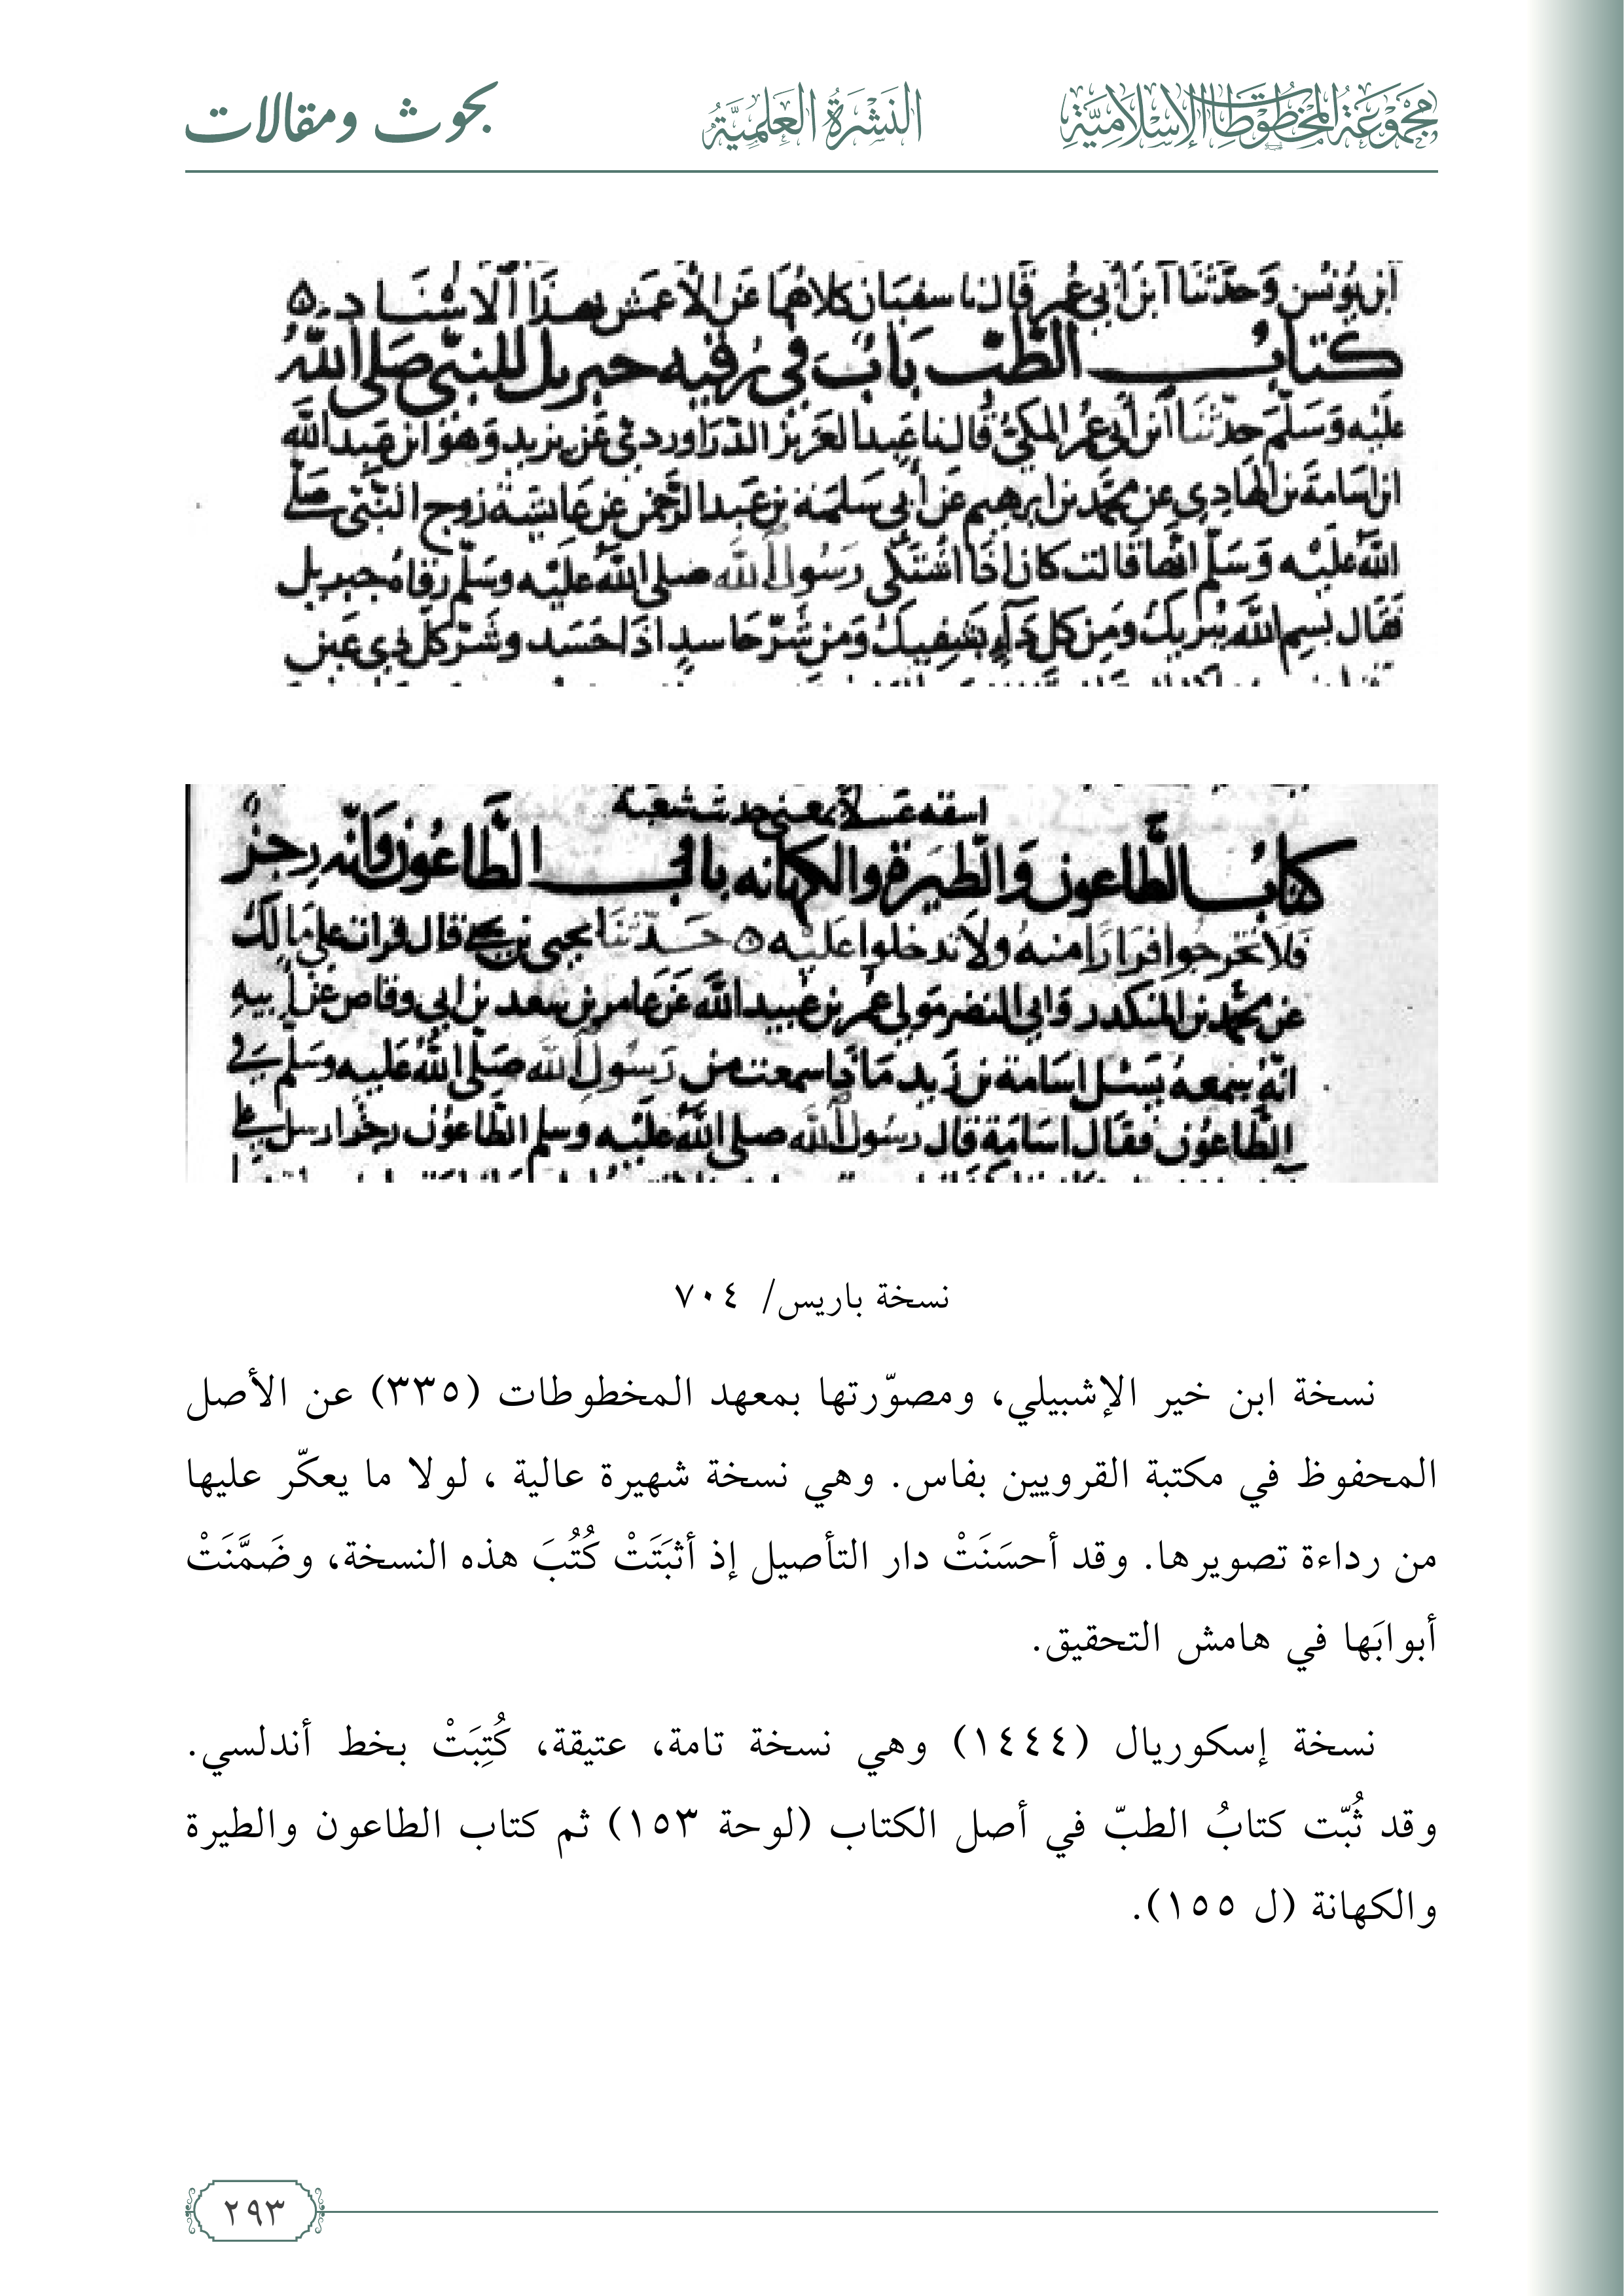 مجموعة المخطوطات الإسلامية
النشرة العلمية
بحوث ومقالات
ابن يونس وحدثنا ابن أبي عمر قال نا سفيان كلاهما عن الأعمش بهذا الاسناد
كتاب الطب باب في رقيه جبريل للنبي صلى الله
عليه وسلم حدثنا ابن أبي عمر المكي قال نا عبد العزيز الدراوردي عن يزيد وهو ابن عبد الله
ابن اسامة بن الهادي عن محمد بن ابرهيم عن أبي سلمة بن عبد الرحمن عن عايشة زوج النبي صلى
الله عليه وسلم انها قالت كان اذا اشتكى رسول الله صلى الله عليه وسلم رقاه جبريل
فقال بسم الله يبريك ومن كل داء يشفيك ومن شر حاسد اذا حسد وشر كل ذي عين
كتاب الطاعون والطيرة والكهانه باب في الطاعون وانه رجز
فلا تخرجوا فرارا منه ولا تدخلوا عليه حدثنا يحيى بن يحيى قال قرات على مالك
عن محمد بن المنكدر وابي النضر مولى عمر بن عبيد الله عن عامر بن سعد بن ابي وقاص عن ابيه
انه سمعه يسئل اسامة بن زيد ماذا سمعت من رسول الله صلى الله عليه وسلم في
الطاعون فقال اسامة قال رسول الله صلى الله عليه وسلم الطاعون رجز ارسل على
نسخة باريس/ ٧٠٤
نسخة ابن خير الإشبيلي، ومصوّرتها بمعهد المخطوطات (٣٣٥) عن الأصل
المحفوظ في مكتبة القرويين بفاس. وهي نسخة شهيرة عالية ، لولا ما يعكّر عليها
من رداءة تصويرها. وقد أحسَنَتْ دار التأصيل إذ أثبَتَتْ كُتُبَ هذه النسخة، وضَمَّنَتْ
أبوابَها في هامش التحقيق.
نسخة إسكوريال (١٤٤٤) وهي نسخة تامة، عتيقة، كُتِبَتْ بخط أندلسي.
وقد ثُبّت كتابُ الطبّ في أصل الكتاب (لوحة ١٥٣) ثم كتاب الطاعون والطيرة
والكهانة (ل ١٥٥).
٢٩٣